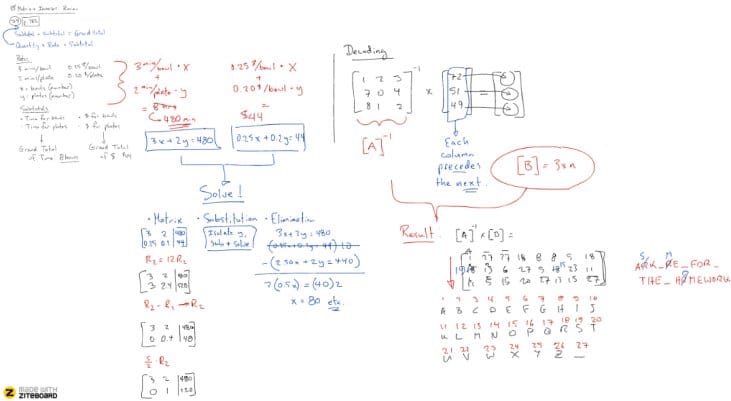 Matrix + Inverse Review
Subtotal + Subtotal = Grand total
Quantity × Rate = Subtotal
Rates
3 min/bowl 0.25 $/bowl
2 mins/plate 0.20 $/plate
x = bowls (number)
y = plates (number)
Subtotals
• Time for bowls • $ for bowls
• Time for plates • $ for plates
Grand Total of Time 8 hours
Grand Total of $ $44
3 min/bowl • x
+
2 min/plate • y
= 8 hrs
480 min
3x + 2y = 480
0.25 $/bowl • x
+
0.20 $/bowl • y
=
$44
0.25x + 0.2y = 44
Solve!
• Matrix • Substitution • Elimination
3 2 | 480
0.25 0.2 | 44
R₂ = 12R₂
3 2 | 480
3 2.4 | 528
R₂ - R₁ → R₂
3 2 | 480
0 0.4 | 48
5/2 • R₂
3 2 | 480
0 1 | 120
Isolate y,
Sub + solve
3x + 2y = 480
(0.25x + 0.2y = 44) 10
- (2.50x + 2y = 440)
2 (0.5x) = (40) 2
x = 80 etc.
Decoding
1 2 3
7 0 4
8 1 2
-1
×
72
51
49
=
[A]⁻¹
Each
column
precedes
the next.
[B] = 3×n
Result: [A]⁻¹ × [D] =
ARK_RE_FOR_
THE_HOMEWORK
1 2 3 4 5 6 7 8 9 10
A B C D E F G H I J
11 12 13 14 15 16 17 18 19 20
K L M N O P Q R S T
21 22 23 24 25 26 27
U V W X Y Z _
MADE WITH
ZITEBOARD